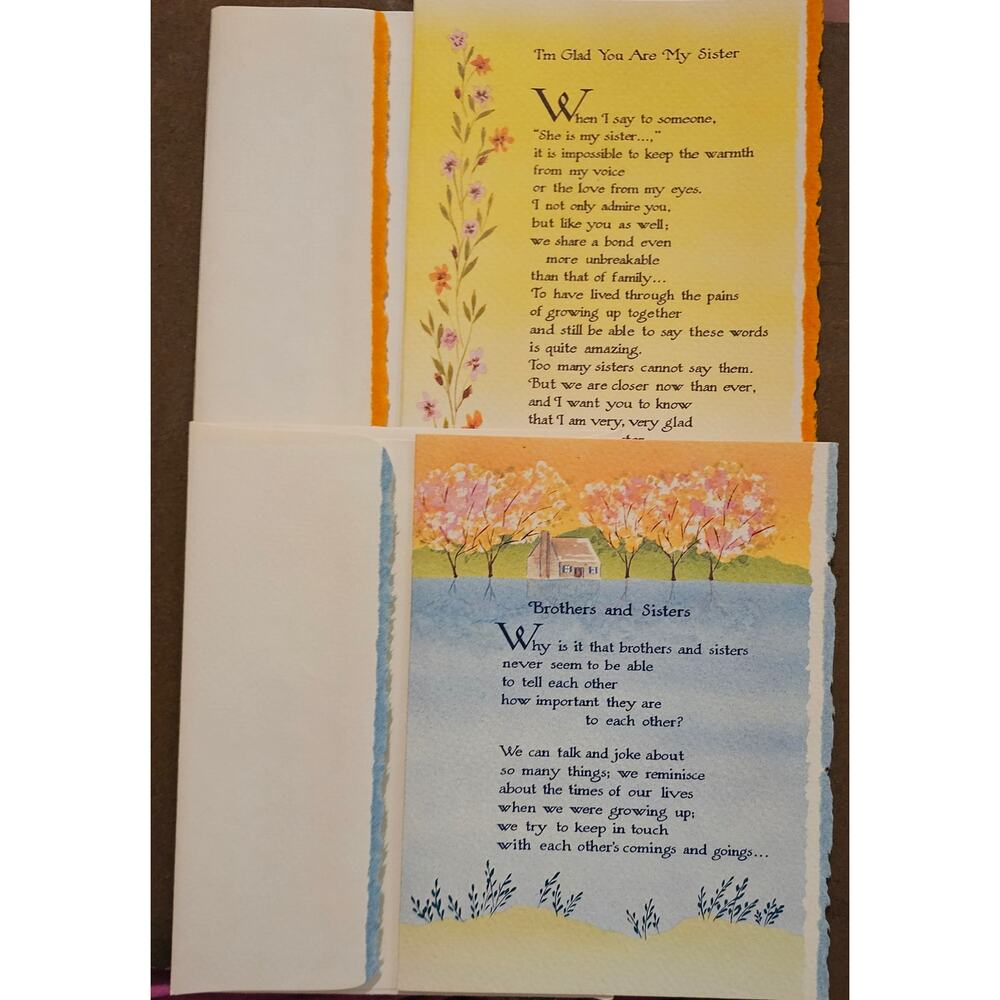 I'm Glad You Are My Sister
When I say to someone,
"She is my sister...,"
it is impossible to keep the warmth
from my voice
or the love from my eyes.
I not only admire you,
but like you as well;
we share a bond even
more unbreakable
than that of family...
To have lived through the pains
of growing up together
and still be able to say these words
is quite amazing.
Too many sisters cannot say them.
But we are closer now than ever,
and I want you to know
that I am very, very glad
Brothers and Sisters
Why is it that brothers and sisters
never seem to be able
to tell each other
how important they are
to each other?
We can talk and joke about
so many things; we reminisce
about the times of our lives
when we were growing up;
we try to keep in touch
with each other's comings and goings...